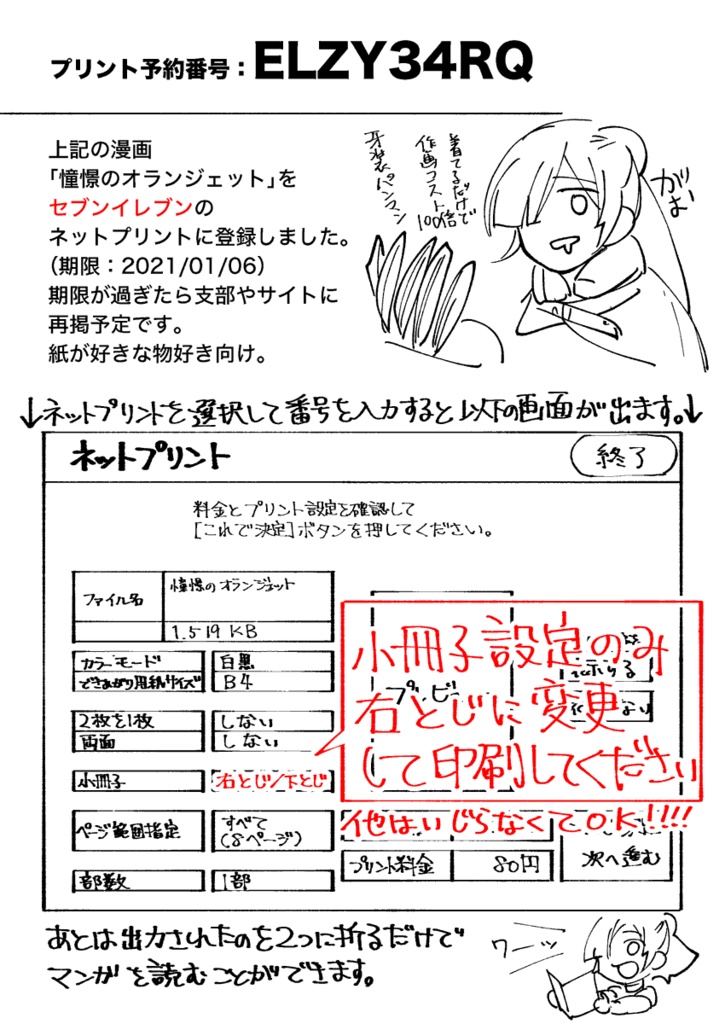 プリント予約番号：ELZY34RQ
上記の漫画
「憧憬のオランジェット」を
セブンイレブンの
ネットプリントに登録しました。
（期限：2021/01/06）
期限が過ぎたら支部やサイトに
再掲予定です。
紙が好きな物好き向け。
着てるだけで
作画コスト
100倍
牙襲ペンマン
がお
↓ネットプリントを選択して番号を入力すると以下の画面が出ます。↓
ネットプリント
終了
料金とプリント設定を確認して
[これで決定]ボタンを押してください。
ファイル名
憧憬のオランジェット
1.519KB
カラーモード
白黒
できあがり用紙サイズ
B4
2枚を1枚
しない
両面
しない
小冊子
右とじ/下とじ
ページ範囲指定
すべて
(8ページ)
部数
1部
プレビ
小冊子設定のみ
右とじに変更
して印刷してください
他はいじらなくてOK!!!!
プリント料金
80円
次へ進む
あとは出力されたのを2つに折るだけで
マンガを読むことができます。
ワーッ